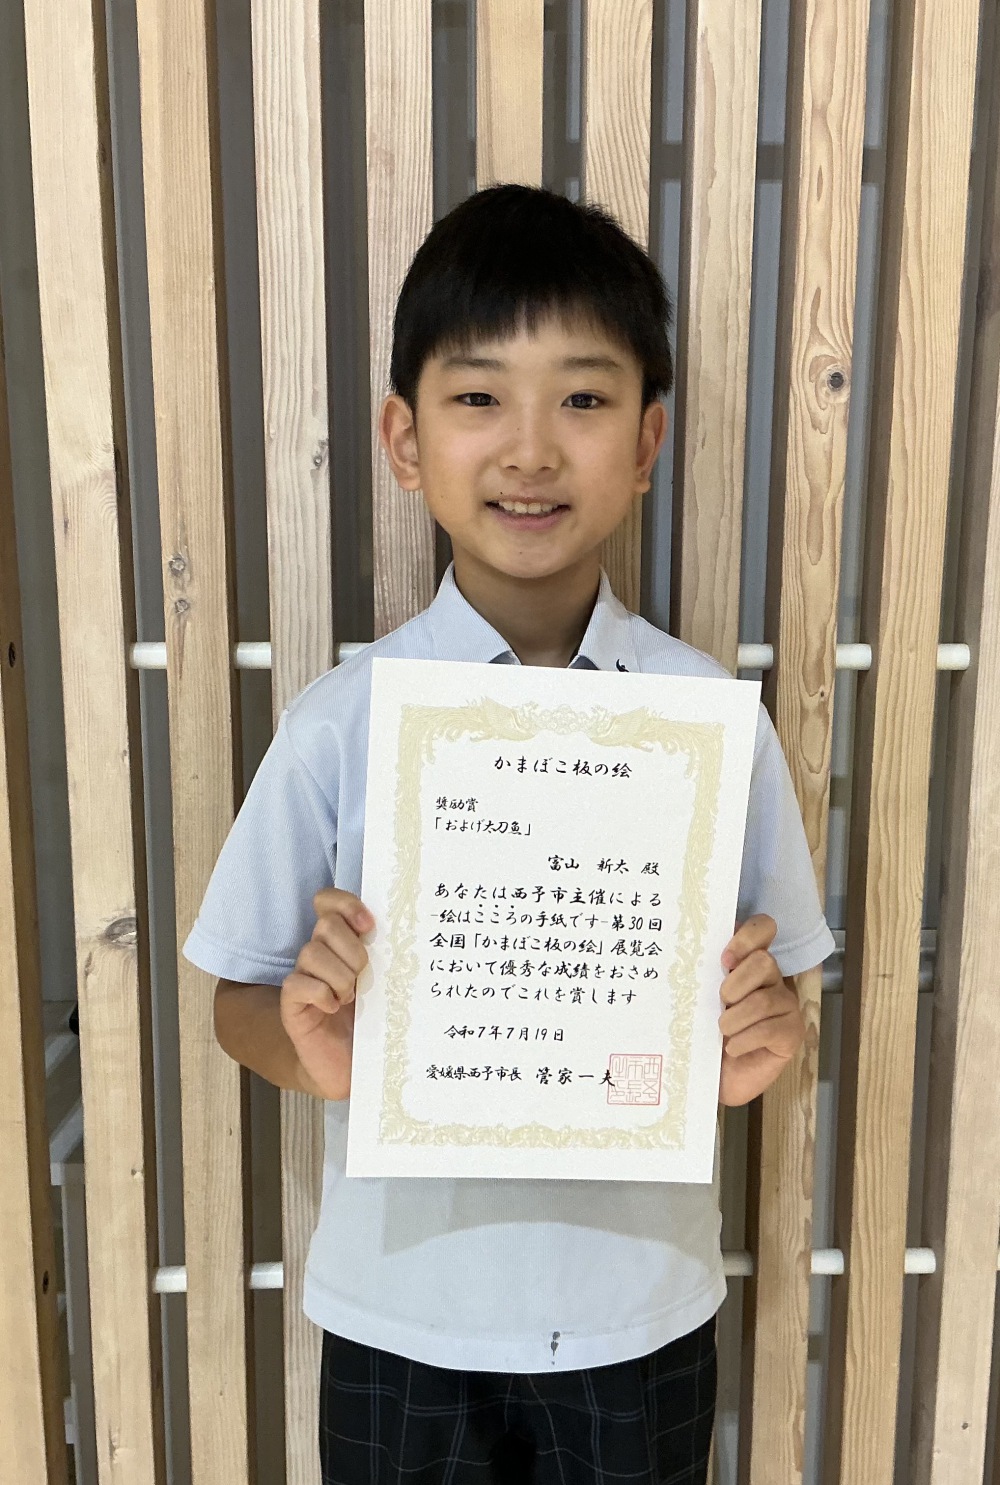 かまぼこ板の絵
奨励賞
「およげ太刀魚」
富山 新太 殿
あなたは西予市主催による
-絵はこころの手紙です-第30回
全国「かまぼこ板の絵」展覧会
において優秀な成績をおさめ
られたのでこれを賞します
令和7年7月19日
愛媛県西予市長 管家一夫
西予市長之印